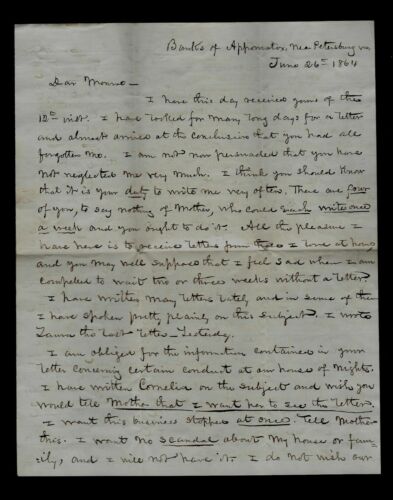 Banks of Appomatox, Near Petersburg Va
June 26th 1864
Dear Monroe—
I have this day received yours of the
12th inst. I have looked for many long days for a letter
and almost arrived at the conclusion that you had all
forgotten me. I am not now persuaded that you have
not neglected me very much. I think you should know
that it is your duty to write me very often. There are four
of you, to say nothing of Mother, who could each write once
a week and you ought to do it. All the pleasure I
have here is to receive letters from those I love at home
and you may well suppose that I feel sad when I am
compelled to wait two or three weeks without a letter.
I have written many letters lately and in some of them
I have spoken pretty plainly on this subject. I wrote
Laura the last letter—Yesterday.
I am obliged for the information contained in your
letter concerning certain conduct at our house of nights.
I have written Cornelia on the subject and wish you
would tell Mother that I want her to see the letter.
I want this business stopped at once. Tell Mother
this. I want no scandal about my house or fam-
ily, and I will not have it. I do not wish our